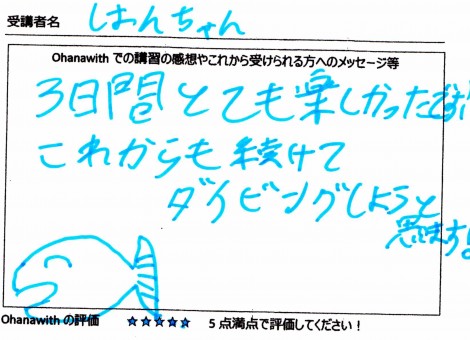 受講者名 しおんちゃん
Ohanawith での講習の感想やこれから受けられる方へのメッセージ等
3日間とても楽しかったです!
これからも続けて
ダイビングしようと
思います!
Ohanawith の評価 ☆☆☆☆☆ 5点満点で評価してください!